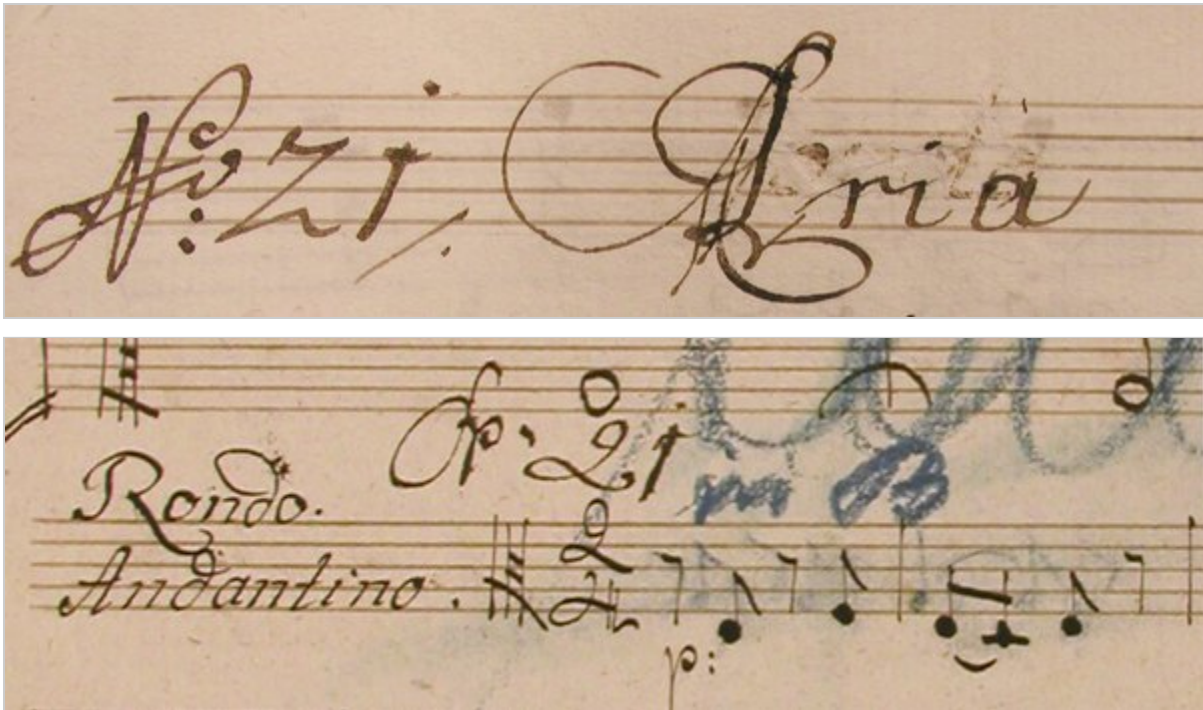 No. 21. Aria
21
Rondo.
Andantino. 2 4
p: